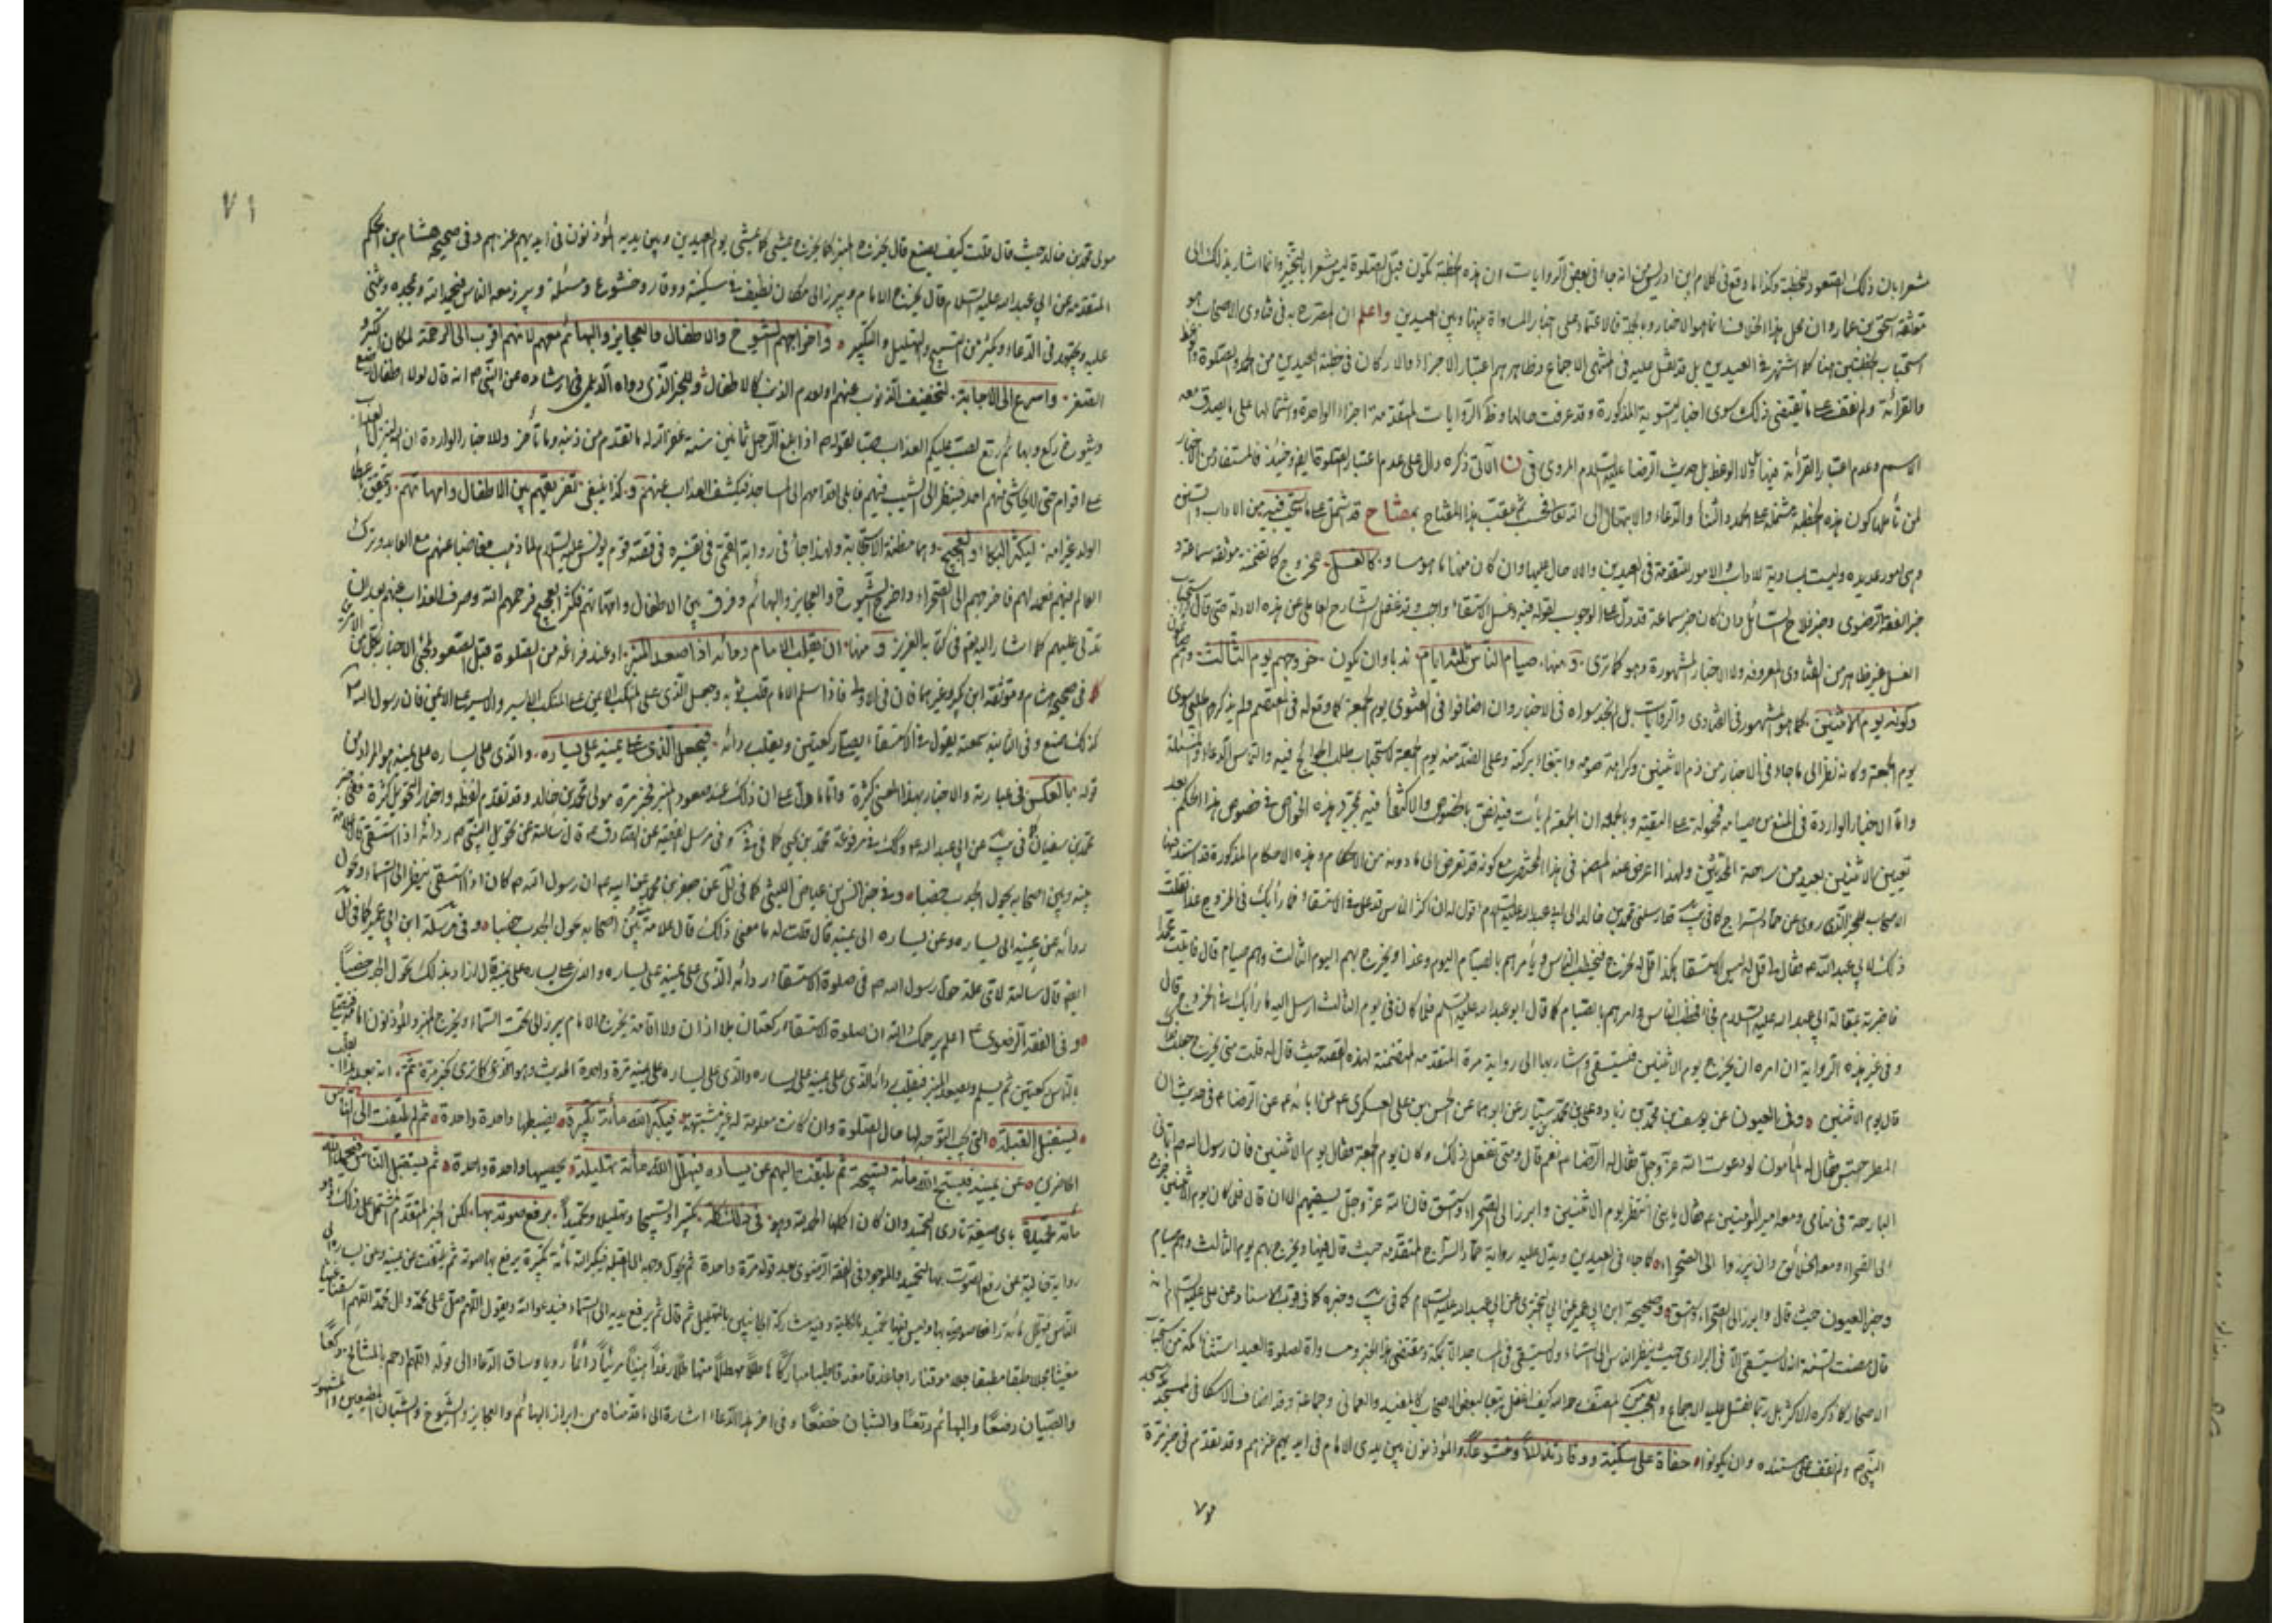 مشعرا بان ذلك لصعود الخطبة وكذا ما وقع فى كلام ابن ادريس من انه جاء فى بعض الروايات ان هذه الخطبة تكون قبل الصلوة ليس مشعرا بالتخيير وانما اشار بذلك الى
موثقة اسحق بن عمار وان محل هذا الخلاف انما هو الاخبار وبالجملة فالاعتماد على اخبار المساواة بينها وبين العيدين واعلم ان المصرح به فى فتاوى الاصحاب هو
استحباب الخطبتين هنا كما اشتهر فى العيدين بل قد نقل عليه فى المنتهى الاجماع وظاهرهم اعتبار الاجزاء والاركان فى خطبة العيدين من الحمد والصلوة والوعظ
والقرائة ولم نقف على ما يقتضى ذلك سوى اخبار التسوية المذكورة وقد عرفت حالها الروايات المتقدمة اجزاء الواحدة واشتمالها على ما يصدق معه
الاسم وعدم اعتبار القرائة فيها ولا الوعظ بل حديث الرضا عليه السلام المروى فى ن الآتى ذكره دال على عدم اعتبار الصلوة ايضا وحينئذ فالمستفاد من الاخبار
لمن تأملها كون هذه الخطبة مشتملة على الحمد والثناء والدعاء والابتهال الى الله تعالى فحسب ثم عقب هذا المفتاح بمفتاح قد اشتمل على ما يستحب فيه من الاداب والسنن
وهى امور عديدة وليست مساوية للاداب والامور المتقدمة فى العيدين والاحال عليها وان كان منها ما هو مساو كالغسل للخروج كما تضمنته موثقة سماعة و
خبر الفقه الرضوى وخبر فلاح السائل وان كان خبر سماعة قد دل على الوجوب لقوله فيه وغسل الاستسقاء واجب وقد غفل الشارح العاملى عن هذه الادلة حتى قال استحباب
الغسل غير ظاهر من الفتاوى المعروفة ولا الاخبار المشهورة وهو كما ترى ومنها صيام الناس ثلثة ايام ندبا وان يكون خروجهم يوم الثالث وهم صائمون
وكونه يوم الاثنين كما هو المشهور فى الفتاوى والروايات بل لم نجد سواه فى الاخبار وان اضافوا فى الفتوى يوم الجمعة كما وقع له فى المعتصم ولم يذكر هم على سوى
يوم الجمعة وكانه نظر الى ما جاء فى الاخبار من ذم الاثنين وكراهة صومه وانتفاء بركته وعلى الضد منه يوم الجمعة كاستحباب طلب الحوائج فيه والتماس الدعاء والمسئلة
واما الاخبار الواردة فى المنع من صيامه فمحمولة على التقية وبالجملة ان الجمعة لم يأت فيه نص بالخصوص والاكتفاء فيه بمجرد هذه الخواص فى خصوص هذا الحكم بعد
تعيين الاثنين بعيد من ساحة المحدثين ولهذا اعرض عنه المصنف فى هذا المختصر مع كونه قد تعرض الى ما دونه من الاحكام وهذه الاحكام المذكورة قد استند فيها
الاصحاب للخبر الذى روى عن حماد السراج كما فى يب قال ارسلنى محمد بن خالد الى ابى عبد الله عليه السلام اقول له ان اكثر الناس قد على فى الاستسقاء فما رأيك فى الخروج غدا فقلت
ذلك لابى عبد الله ع فقال لى قل له ليس الاستسقاء هكذا قل له يخرج فيخطب الناس ويأمرهم بالصيام اليوم وغدا ويخرج بهم اليوم الثالث وهم صيام قال فاتيت محمدا
فاخبرته بمقالة ابى عبد الله عليه السلام فجاء فخطب الناس وامرهم بالصيام كما قال ابو عبد الله عليه السلام فلما كان فى يوم الثالث ارسل اليه ما رأيك فى الخروج قال
وفى غير هذه الرواية ان امره ان يخرج يوم الاثنين فيستسقى واشار بها الى رواية مرة المتقدمة المتضمنة لهذه القصة حيث قال له قلت متى يخرج جعلت فداك
قال يوم الاثنين وفى العيون عن يوسف بن محمد بن زياد وعلى بن محمد بن سيار عن ابويهما عن الحسن بن على العسكرى ع عن ابائه ع عن الرضا ع فى حديث ان
المطر احتبس فقال له المأمون لو دعوت الله عز وجل فقال له الرضا ع نعم قال ومتى تفعل ذلك وكان يوم الجمعة فقال يوم الاثنين فان رسول الله ص اتانى
البارحة فى منامى ومعه امير المؤمنين ع فقال يا بنى انتظر يوم الاثنين وابرز الى الصحراء واستسق فان الله عز وجل يسقيهم الى ان قال فلما كان يوم الاثنين خرج
الى الصحراء ومعه الخلائق وان يبرزوا الى الصحراء كما جاء فى العيدين ويدل عليه رواية حماد السراج المتقدمة حيث قال فيها ويخرج بهم يوم الثالث وهم صيام
وخبر العيون حيث قال وابرز الى الصحراء واستسق وصحيحة ابن ابى عمير عن ابى البخترى عن ابى عبد الله عليه السلام كما فى يب وخبره كما فى قرب الاسناد عن على عليه السلام انه
قال مضت السنة انه لا يستسقى الا فى البرارى حيث ينظر الناس الى السماء ولا يستسقى فى المساجد الا بمكة ومقتضى هذا الخبر ومساواة لصلوة العيد استثناء مكة من استحباب
الاصحار كما ذكره الاكثر بل ربما نقل عليه الاجماع والعجب من المصنف رحمه الله كيف غفل تبعا لبعض الاصحاب كالمفيد والعمانى وجماعة وقد اضاف الاسكافى لمسجد مكة مسجد
النبى ص ولم نقف على مستنده وان يكونوا حفاة على سكينة ووقار تذللاً وخشوعاً والمؤذنون بين يدى الامام فى ايديهم عنزهم وقد تقدم فى خبر مرة
٧٠
٧١
مولى محمد بن خالد حيث قال قلت كيف يصنع قال يخرج المنبر ثم يخرج يمشى كما يمشى يوم العيدين وبين يديه المؤذنون فى ايديهم عنزهم وفى صحيح هشام بن الحكم
المتقدمة عن ابى عبد الله عليه السلام قال يخرج الامام ويبرز الى مكان نظيف فى سكينة ووقار وخشوع ومسئلة ويبرز معه الناس فيحمد الله ويمجده ويثنى
عليه ويجتهد فى الدعاء ويكثر من التسبيح والتهليل والتكبير واخراجهم الشيوخ والاطفال والعجايز والبهائم معهم لانهم اقرب الى الرحمة لمكان الكبر و
الصغر واسرع الى الاجابة لتخفيف الذنوب عنهم او لعدم الذنب كالاطفال وللخبر الذى رواه الديلمى فى ارشاده عن النبى ص انه قال لولا اطفال رضع
وشيوخ ركع وبهائم رتع لصب عليكم العذاب صبا لقوله ص اذا بلغ الرجل ثمانين سنة غفر الله له ما تقدم من ذنبه وما تأخر وللاخبار الواردة ان الله لينزل العذاب
على اقوام حتى لا يحاشى منهم احد فينظر الى الشيب فيهم ناقلى اقدامهم الى المساجد فيكشف العذاب عنهم وكذا ينبغى تفريقهم بين الاطفال وامهاتهم
الولد عن امه ليكثر البكاء والعجيج وهما مظنة الاستجابة ولهذا جاء فى رواية القمى فى تفسيره فى قصة قوم يونس عليه السلام لما ذهب مغاضبا عنهم مع العابد وترك
العالم فيهم فعمد لهم فاخرجهم الى الصحراء واخرج الشيوخ والعجايز والبهائم وفرق بين الاطفال وامهاتهم فكثر العجيج فرحمهم الله وصرف العذاب عنهم بعد ان
تدلى عليهم كما اشار اليه تعالى فى كتابه العزيز ومنها ان يقلب الامام ردائه اذا صعد المنبر او عند فراغه من الصلوة قبل الصعود لمجئ الاخبار بكلى الامرين
فى صحيح هشام وموثقة ابن بكير وغيرهما فان فى الاولى فاذا سلم الامام قلب ثوبه وجعل الذى على المنكب الايمن على المنكب الايسر والايسر على الايمن فان رسول الله ص
كذلك صنع وفى الثانية سمعته يقول فى الاستسقاء يصلى ركعتين ويقلب ردائه فيجعل الذى على يمينه على يساره والذى على يساره على يمينه وهو المراد من
قوله بالعكس فى عبارته والاخبار بهذا المعنى كثيرة واما ما دل على ان ذلك عند صعود المنبر فخبر مرة مولى محمد بن خالد وقد تقدم لفظه واخبار التحويل كثيرة ففى خبر
محمد بن سفيان كما فى يب عن ابى عبد الله ع وكذلك فى مرفوعة محمد بن يحيى كما فى وفى مرسل الفقيه عن الصادق ع قال سألته عن تحويل النبى ص ردائه اذا استسقى قال علامة
بينه وبين اصحابه يحول الجدب خصبا وفى خبر انس بن عياض الليثى كما فى لل عن جعفر بن محمد عن ابيه ع ان رسول الله ص كان اذا استسقى ينظر الى السماء ويحول
ردائه عن يمينه الى يساره وعن يساره الى يمينه قال قلت له ما معنى ذلك قال علامة بين اصحابه يحول الجدب خصبا وفى مرسلة ابن ابى عمير كما فى لل
ايضا قال سألته لاى علة حول رسول الله ص فى صلوة الاستسقاء ردائه الذى على يمينه على يساره والذى على يساره على يمينه قال اراد بذلك تحول الجدب خصباً
وفى الفقه الرضوى اعلم يرحمك الله ان صلوة الاستسقاء ركعتان بلا اذان ولا اقامة يخرج الامام يبرز الى تحت السماء ويخرج المنبر والمؤذنون امامه فيصلى
بالناس ركعتين ثم يسلم ويصعد المنبر فيقلب ردائه الذى على يمينه على يساره والذى على يساره على يمينه مرة واحدة الحديث وهو المؤدى كما ترى كخبر مرة ثم انه بعد هذا القلب
يستقبل القبلة التى يجب التوجه لها حال الصلوة وان كانت معلومة له غير مشتبهة فيكبر الله مأئة تكبيرة يضبطها واحدة واحدة ثم يلتفت الى الناس
الحاضرين عن يمينه فيسبح الله مأئة تسبيحة ثم يلتفت اليهم عن يساره فيهلل الله مأئة تهليلة يحصيها واحدة واحدة ثم يستقبل الناس فيحمد الله
مأئة تحميدة باى صيغة تأدى التحميد وان كان اكملها الحمد لله وهو فى ذلك كله تكبيرا وتسبيحا وتهليلا وتحميداً يرفع صوته بها لكن الخبر المتقدم المشتمل على ذلك وهو
رواية خالية عن رفع الصوت بها التحميد والموجود فى الفقه الرضوى بعد قوله مرة واحدة ثم يحول وجهه الى القبلة فيكبر الله مأئة تكبيرة يرفع بها صوته ثم يلتفت عن يمينه وعن يساره الى
الناس فيهلل مأئة رافعا صوته بها وليس فيها تحميد بالكلية وفيه مشاركة الجانبين بالتهليل ثم قال ثم يرفع يديه الى السماء فيدعو الله ويقول اللهم صل على محمد وال محمد اللهم اسقنا غيثا
مغيثا مجللا طبقا مطبقا جللا مونقا راجيا غدقا مغدقا طيبا مباركا هاطلاً مهطلاً متهاطلاً رغداً هنيئاً مريئاً دائماً رويا وساق الدعاء الى قوله اللهم ارحم بالمشايخ ركعاً
والصبيان رضعاً والبهائم رتعاً والشبان خضعاً وفى اخر هذا الدعاء اشارة الى ما قدمناه من ابراز البهائم والعجايز والشيوخ والشبان المطيعين والمشهور